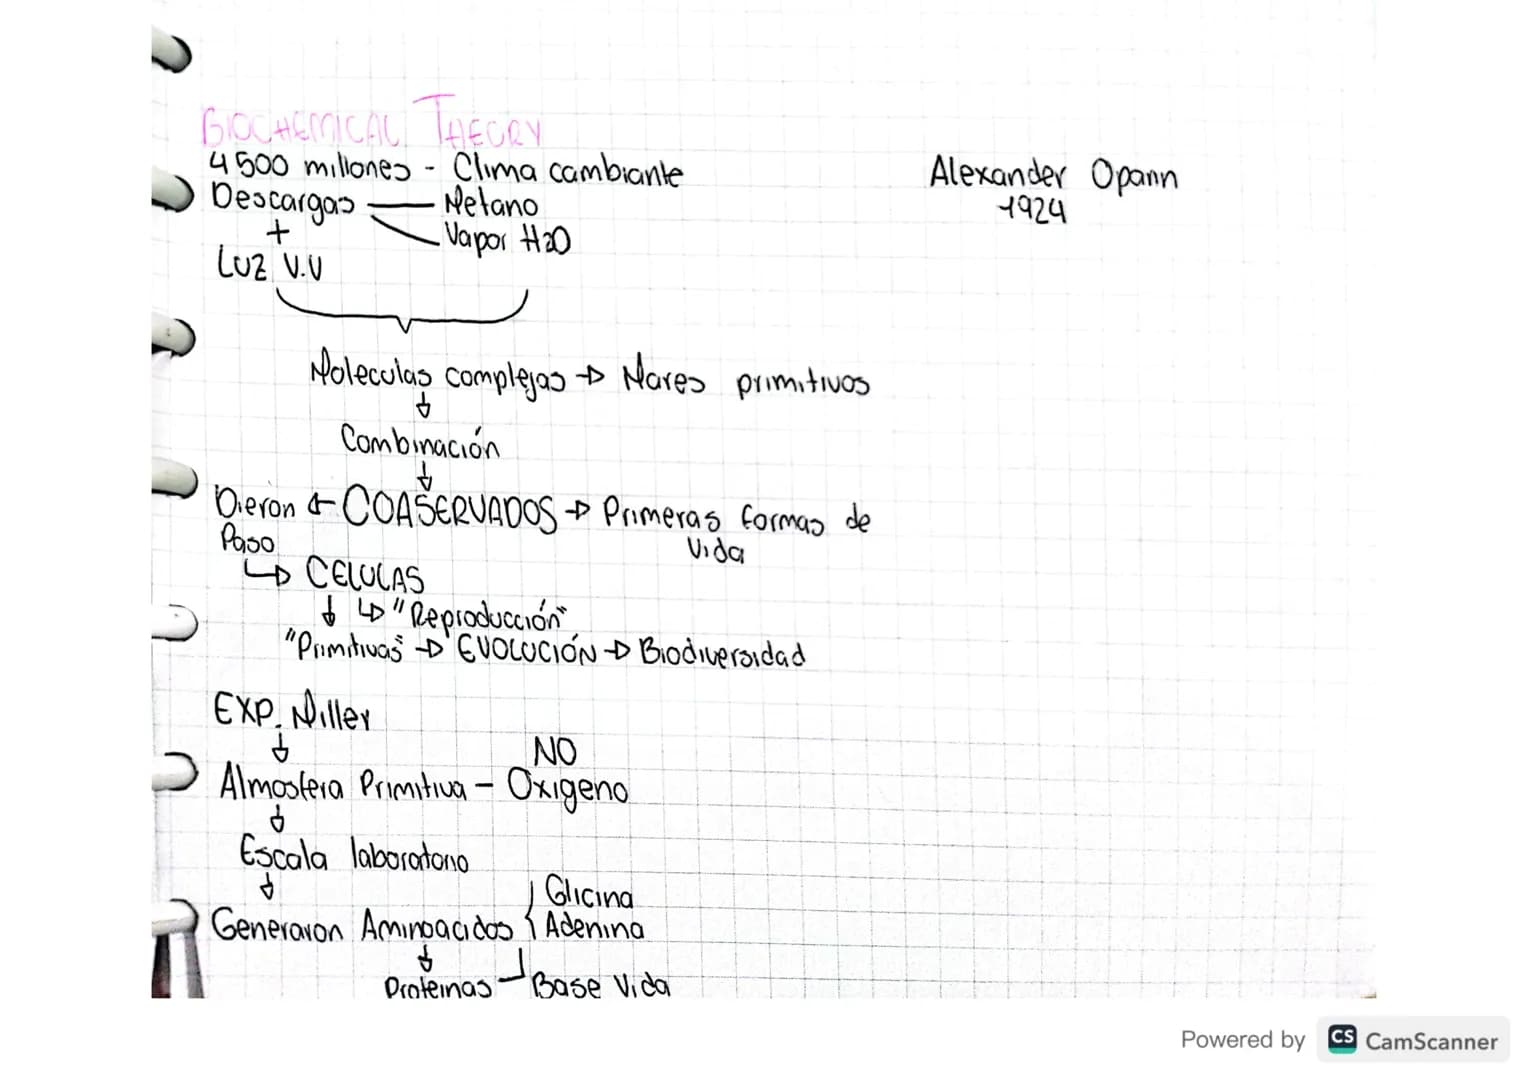 BIOCHEMICAL THEORY
4500 millones - Clima cambiante
Alexander Oparin
1924
Descargas — Metano
+ Vapor H2O
Luz U.V
Moleculas complejas → Mares primitivos
↓
Combinación
↓
Dieron ← COASERVADOS → Primeras formas de
Paso Vida
↳ CELULAS
↓ ↳ "Reproducción"
"Primitivas" → EVOLUCIÓN → Biodiversidad
EXP. Miller
↓ NO
Atmosfera Primitiva - Oxigeno
↓
Escala laboratorio
↓ Glicina
Generaron Aminoacidos { Adenina
↓
Proteinas Base Vida
Powered by CS CamScanner